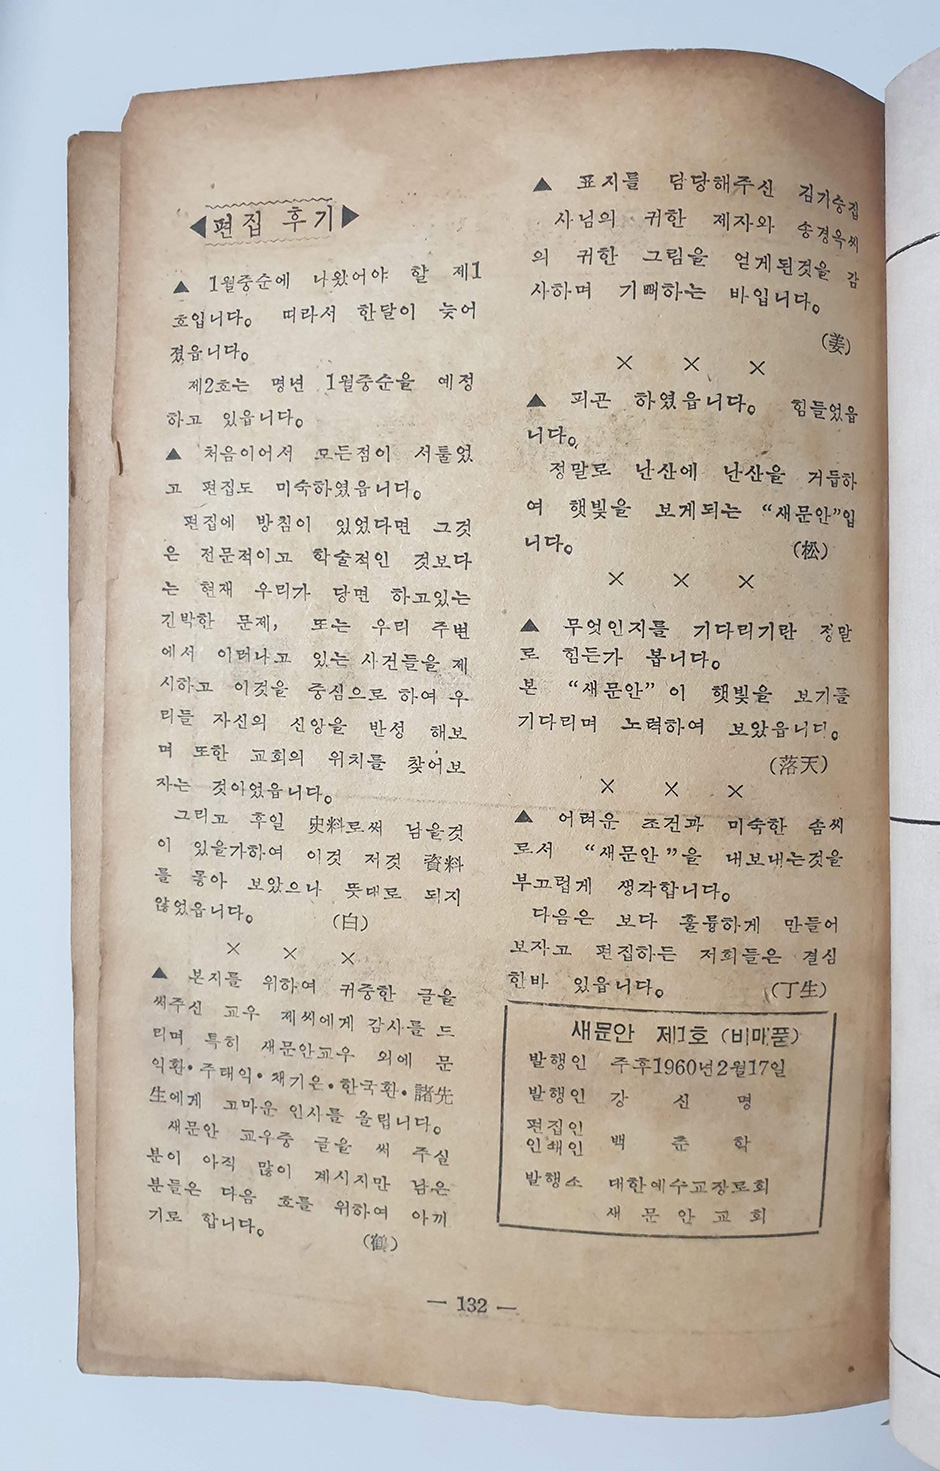 ◀편집 후기▶
▲ 1월중순에 나왔어야 할 제1
호입니다。 띠라서 한달이 늦어
졌읍니다。
제2호는 명년 1월중순을 예정
하고 있읍니다。
▲ 처음이어서 모든점이 서툴었
고 편집도 미숙하였읍니다。
편집에 방침이 있었다면 그것
은 전문적이고 학술적인 것보다
는 현재 우리가 당면 하고있는
긴박한 문제, 또는 우리 주변
에서 이러나고 있는 사건들을 제
시하고 이것을 중심으로 하여 우
리들 자신의 신앙을 반성 해보
며 또한 교회의 위치를 찾어보
자는 것이였읍니다。
그리고 후일 史料로써 남을것
이 있을가하여 이것 저것 資料
를 몰아 보았으나 뜻대로 되지
않었읍니다。 (白)
× × ×
▲ 본지를 위하여 귀중한 글을
써주신 교우 제씨에게 감사를 드
리며 특히 새문안교우 외에 문
익환·주태익·채기은·한국환·諸先
生에게 꼬마운 인사를 올립니다。
새문안 교우중 글을 써 주실
분이 아직 많이 계시지만 남은
분들은 다음 호를 위하여 아끼
기로 합니다。
(鶴)
▲ 표지를 담당해주신 김기승집
사님의 귀한 제자와 송경옥씨
의 귀한 그림을 얻게된것을 감
사하며 기뻐하는 바입니다。
(姜)
× × ×
▲ 피곤 하였읍니다。 힘들었읍
니다。
정말로 난산에 난산을 거듭하
여 햇빛을 보게되는 “새문안”입
니다。 (松)
× × ×
▲ 무엇인지를 기다리기란 정말
로 힘든가 봅니다。
본 “새문안” 이 햇빛을 보기를
기다리며 노력하여 보았읍니다。
(落天)
× × ×
▲ 어려운 조건과 미숙한 솜씨
로서 “새문안”을 내보내는것을
부끄럽게 생각합니다。
다음은 보다 훌륭하게 만들어
보자고 편집하든 저희들은 결심
한바 있읍니다。 (丁生)
새문안 제1호 (비매품)
발행인 주후1960년2월17일
발행인 강 신 명
편집인
인쇄인 백 춘 학
발행소 대한예수교장로회
새 문 안 교 회
— 132 —